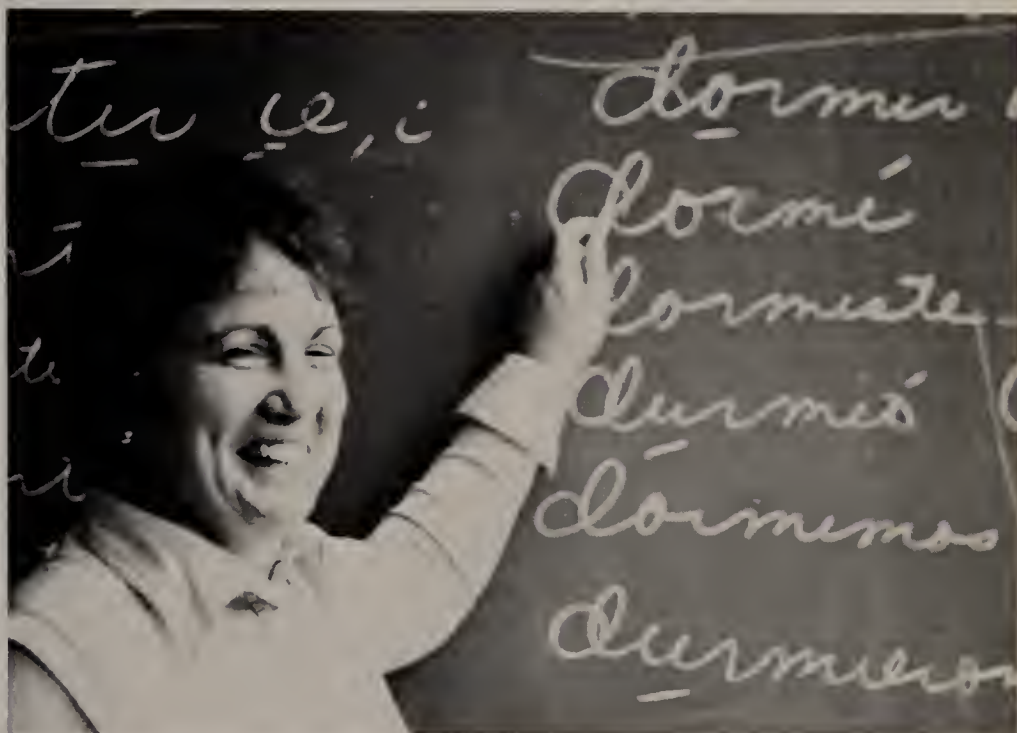 tir ie, i
dormir
dormí
dormiste
durmió
dormimos
durmieron